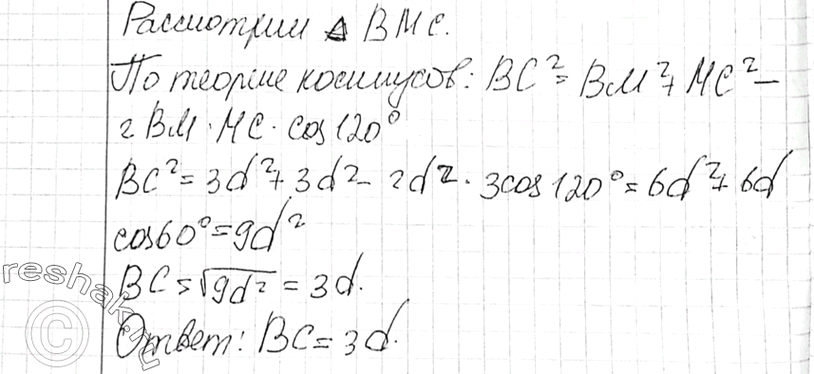 Рассмотрим △ BMC.
По теореме косинусов: BC² = BM² + MC² –
2 BM · MC · cos 120°
BC² = 3d² + 3d² – 2d² · 3cos 120° = 6d² + 6d
cos 60° = 9d²
BC = √9d² = 3d.
Ответ: BC = 3d.
reshak.ru
©